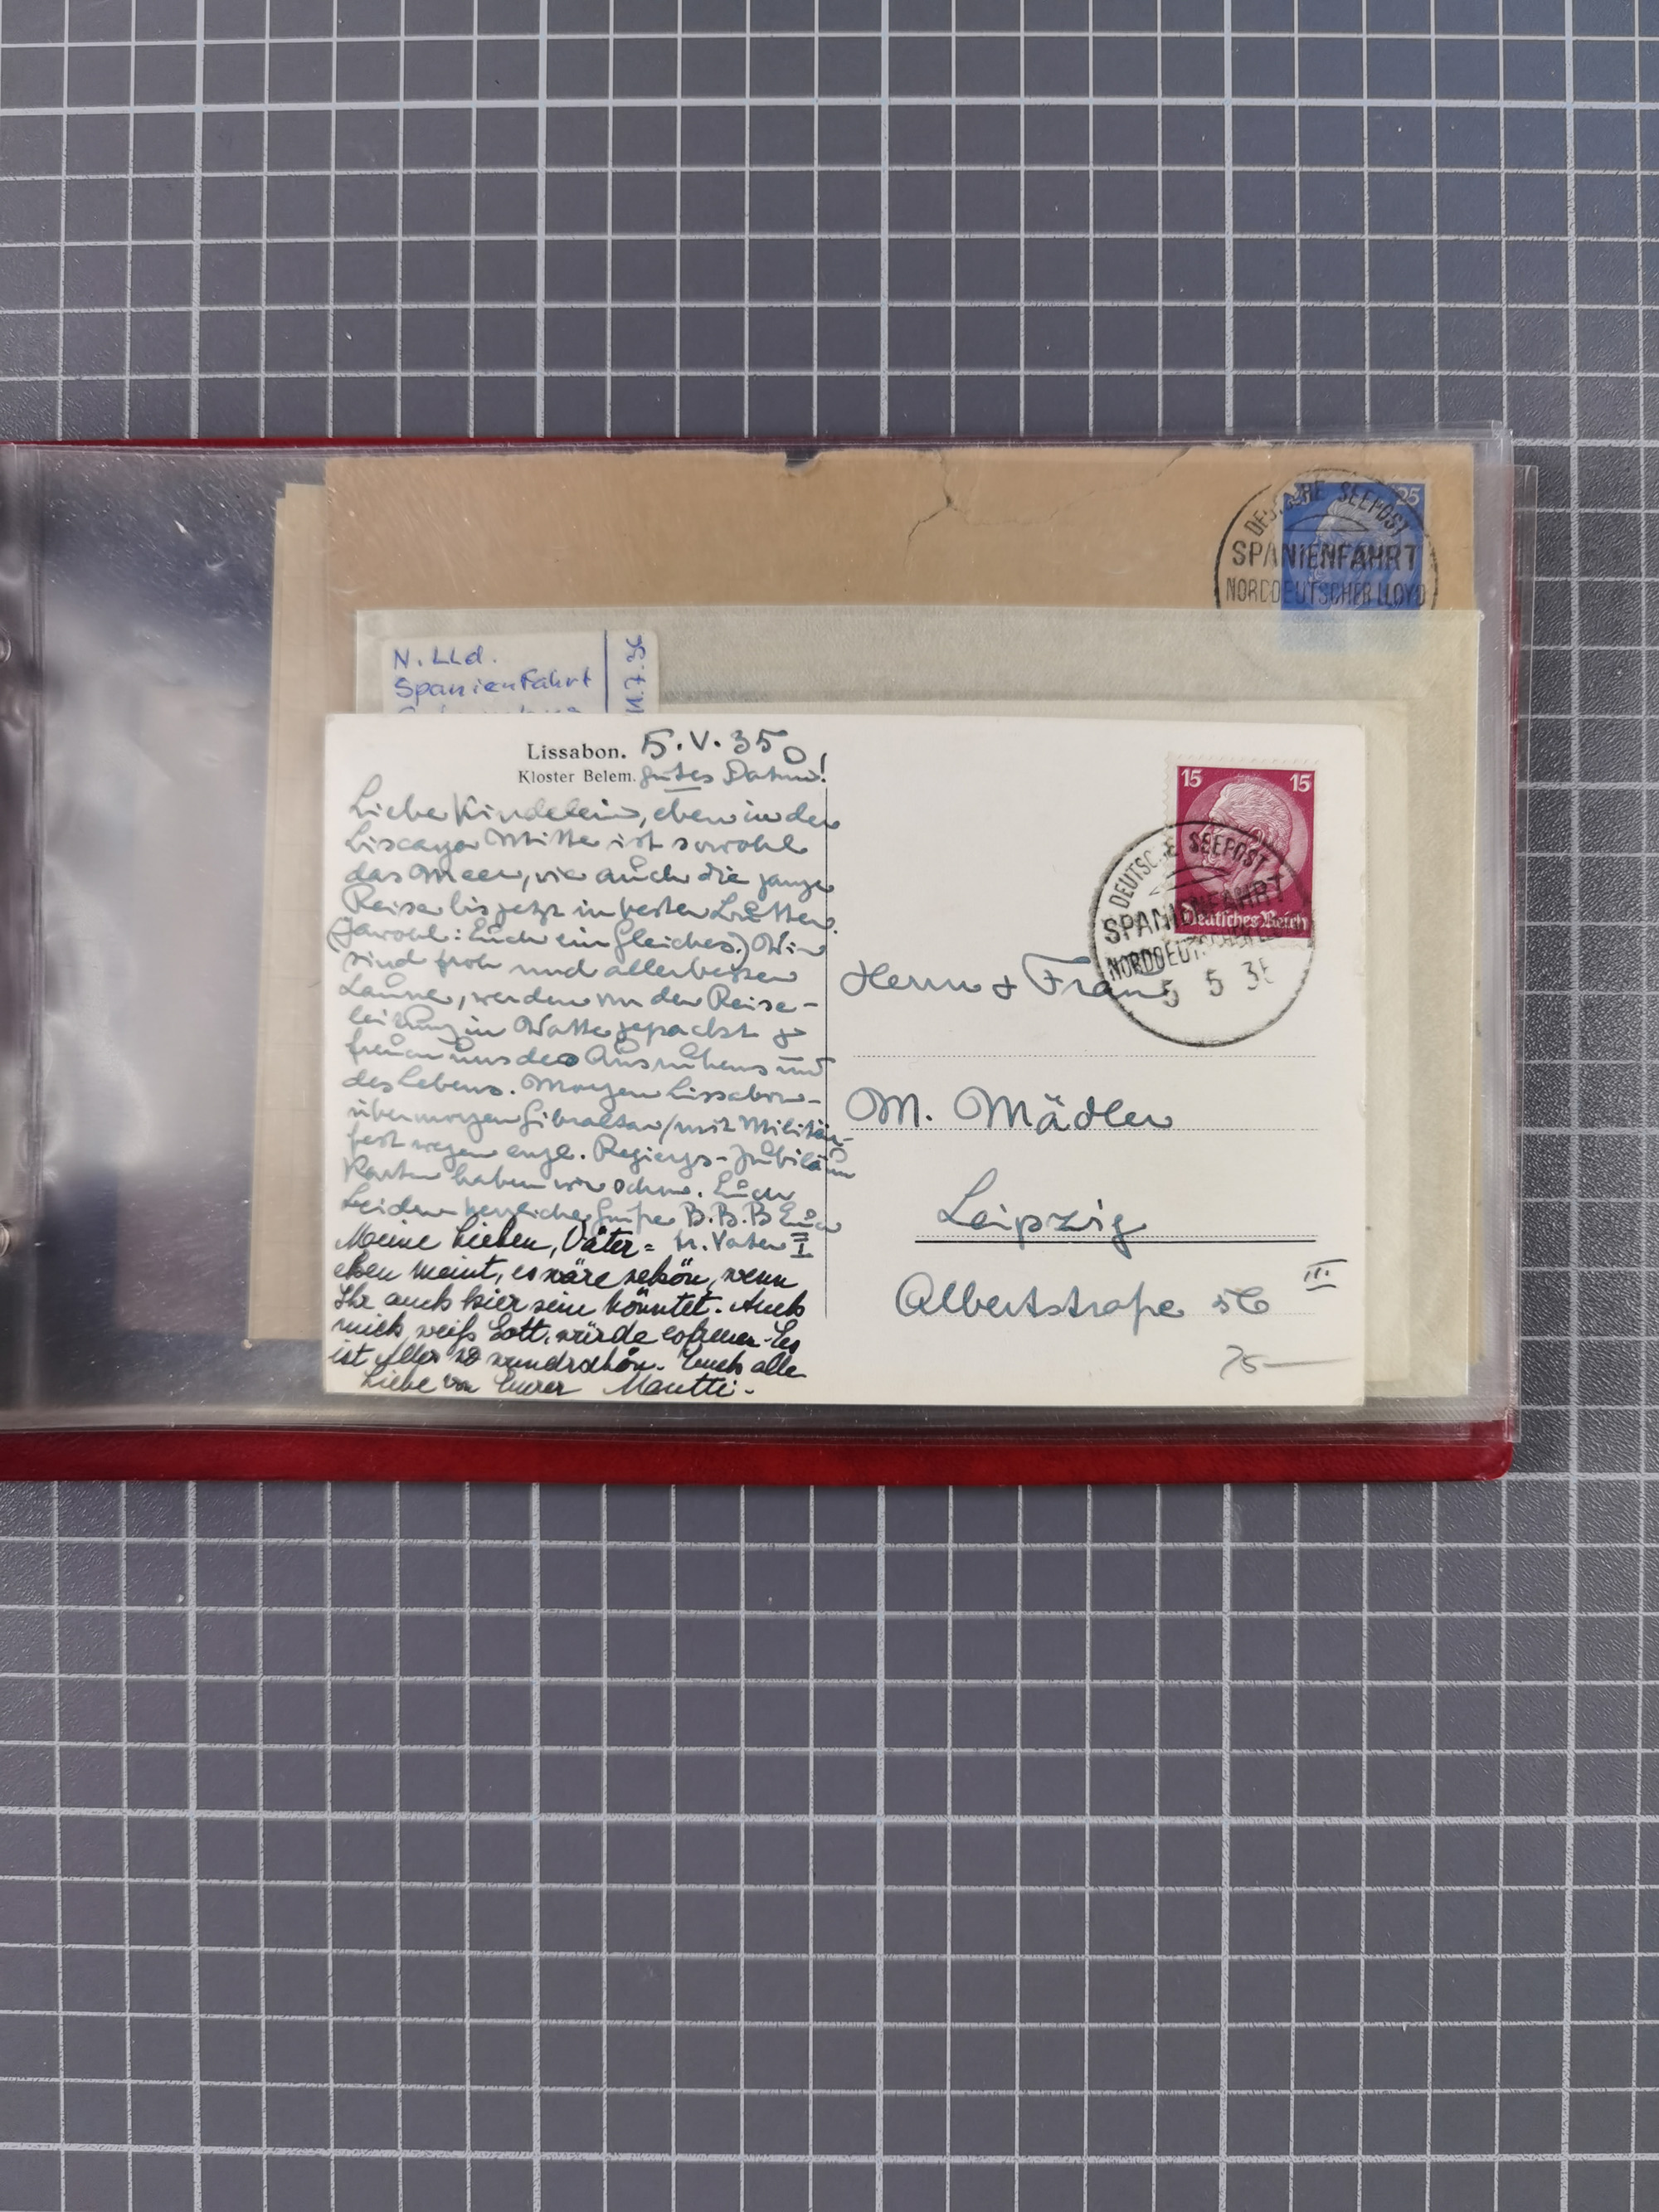 25
DEUTSCHE SEEPOST
SPANIENFAHRT
NORDDEUTSCHER LLOYD
N. LLd.
Spanienfahrt
Lissabon. 5.V.35
Kloster Belem. gutes Datum!
Liebe Kindelein, eben in der
Biscaya Mitte ist sowohl
das Meer, wie auch die ganze
Reise bis jetzt in bester Butter.
(Jawohl: Euch ein Gleiches.) Wir
sind froh und allerbester
Laune, werden von der Reise-
leitung in Watte gepackt &
freuen uns des Ausruhens und
des Lebens. Morgen Lissabon-
übermorgen Gibraltar/mit Militär-
fest wegen engl. Regiergs-Jubiläum
Karten haben wir schon. Euch
beiden herzliche Grüße B.B.B Euer
Vater
Meine Lieben, Vater=
eben meint, es wäre schön, wenn
Ihr auch hier sein könntet. Auch
mich, weiß Gott, würde es freuen. Es
ist Alles so wunderschön. Euch alle
Liebe von Eurer Mutti.
15 15
Deutsches Reich
DEUTSCHE SEEPOST
SPANIENFAHRT
NORDDEUTSCHER
5 5 35
Herrn & Frau
M. Mädler
Leipzig
Albertstraße 56 III
75—